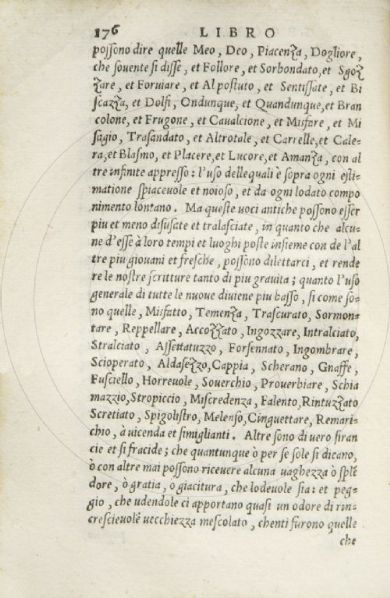 176 LIBRO
possono dire quelle Meo, Deo, Piacenza, Dogliore,
che souente si disse, et Follore, et Sorbondato, et Sgoz
zare, et Foruiare, et Al postuto, et Sentissate, et Bi
scazza, et Dolfi, Ondunque, et Quandunque, et Bran
colone, et Frugone, et Caualcione, et Misfare, et Mi
sagio, Trasandato, et Altrotale, et Carrelle, et Cale-
ra, et Blasmo, et Placere, et Lucore, et Amanza, con al
tre infinite appresso: l'uso dellequali è sopra ogni esti
matione spiaceuole et noioso, et da ogni lodato compo
nimento lontano. Ma queste uoci antiche possono esser
piu et meno disusate et tralasciate, in quanto che alcu-
ne d'esse à loro tempi et luoghi poste insieme con de l'al
tre piu giouani et fresche, possono dilettarci, et rende
re le nostre scritture tanto di piu grauita; quanto l'uso
generale di tutte le nuoue diuiene piu basso, si come so-
no quelle, Misfatto, Temenza, Trascurato, Sormon-
tare, Reppellare, Accozzato, Ingozzare, Intralciato,
Stralciato, Assettatuzzo, Forsennato, Ingombrare,
Scioperato, Aldasezzo, Cappia, Scherano, Gnaffe,
Fusciello, Horreuole, Souerchio, Prouerbiare, Schia
mazzio, Stropiccio, Miscredenza, Falento, Rintuzzato
Scretiato, Spigolistro, Melenso, Cinguettare, Remari-
chio, à uicenda et simiglianti. Altre sono di uero siran
cie et si fracide; che quantunque ò per se sole si dicano,
ò con altre mai possono riceuere alcuna uaghezza ò splē
dore, ò gratia, ò giacitura, che lodeuole sia: et peg-
gio, che udendole ci apportano quasi un odore di rin-
cresceuole uecchiezza mescolato, chenti furono quelle
che